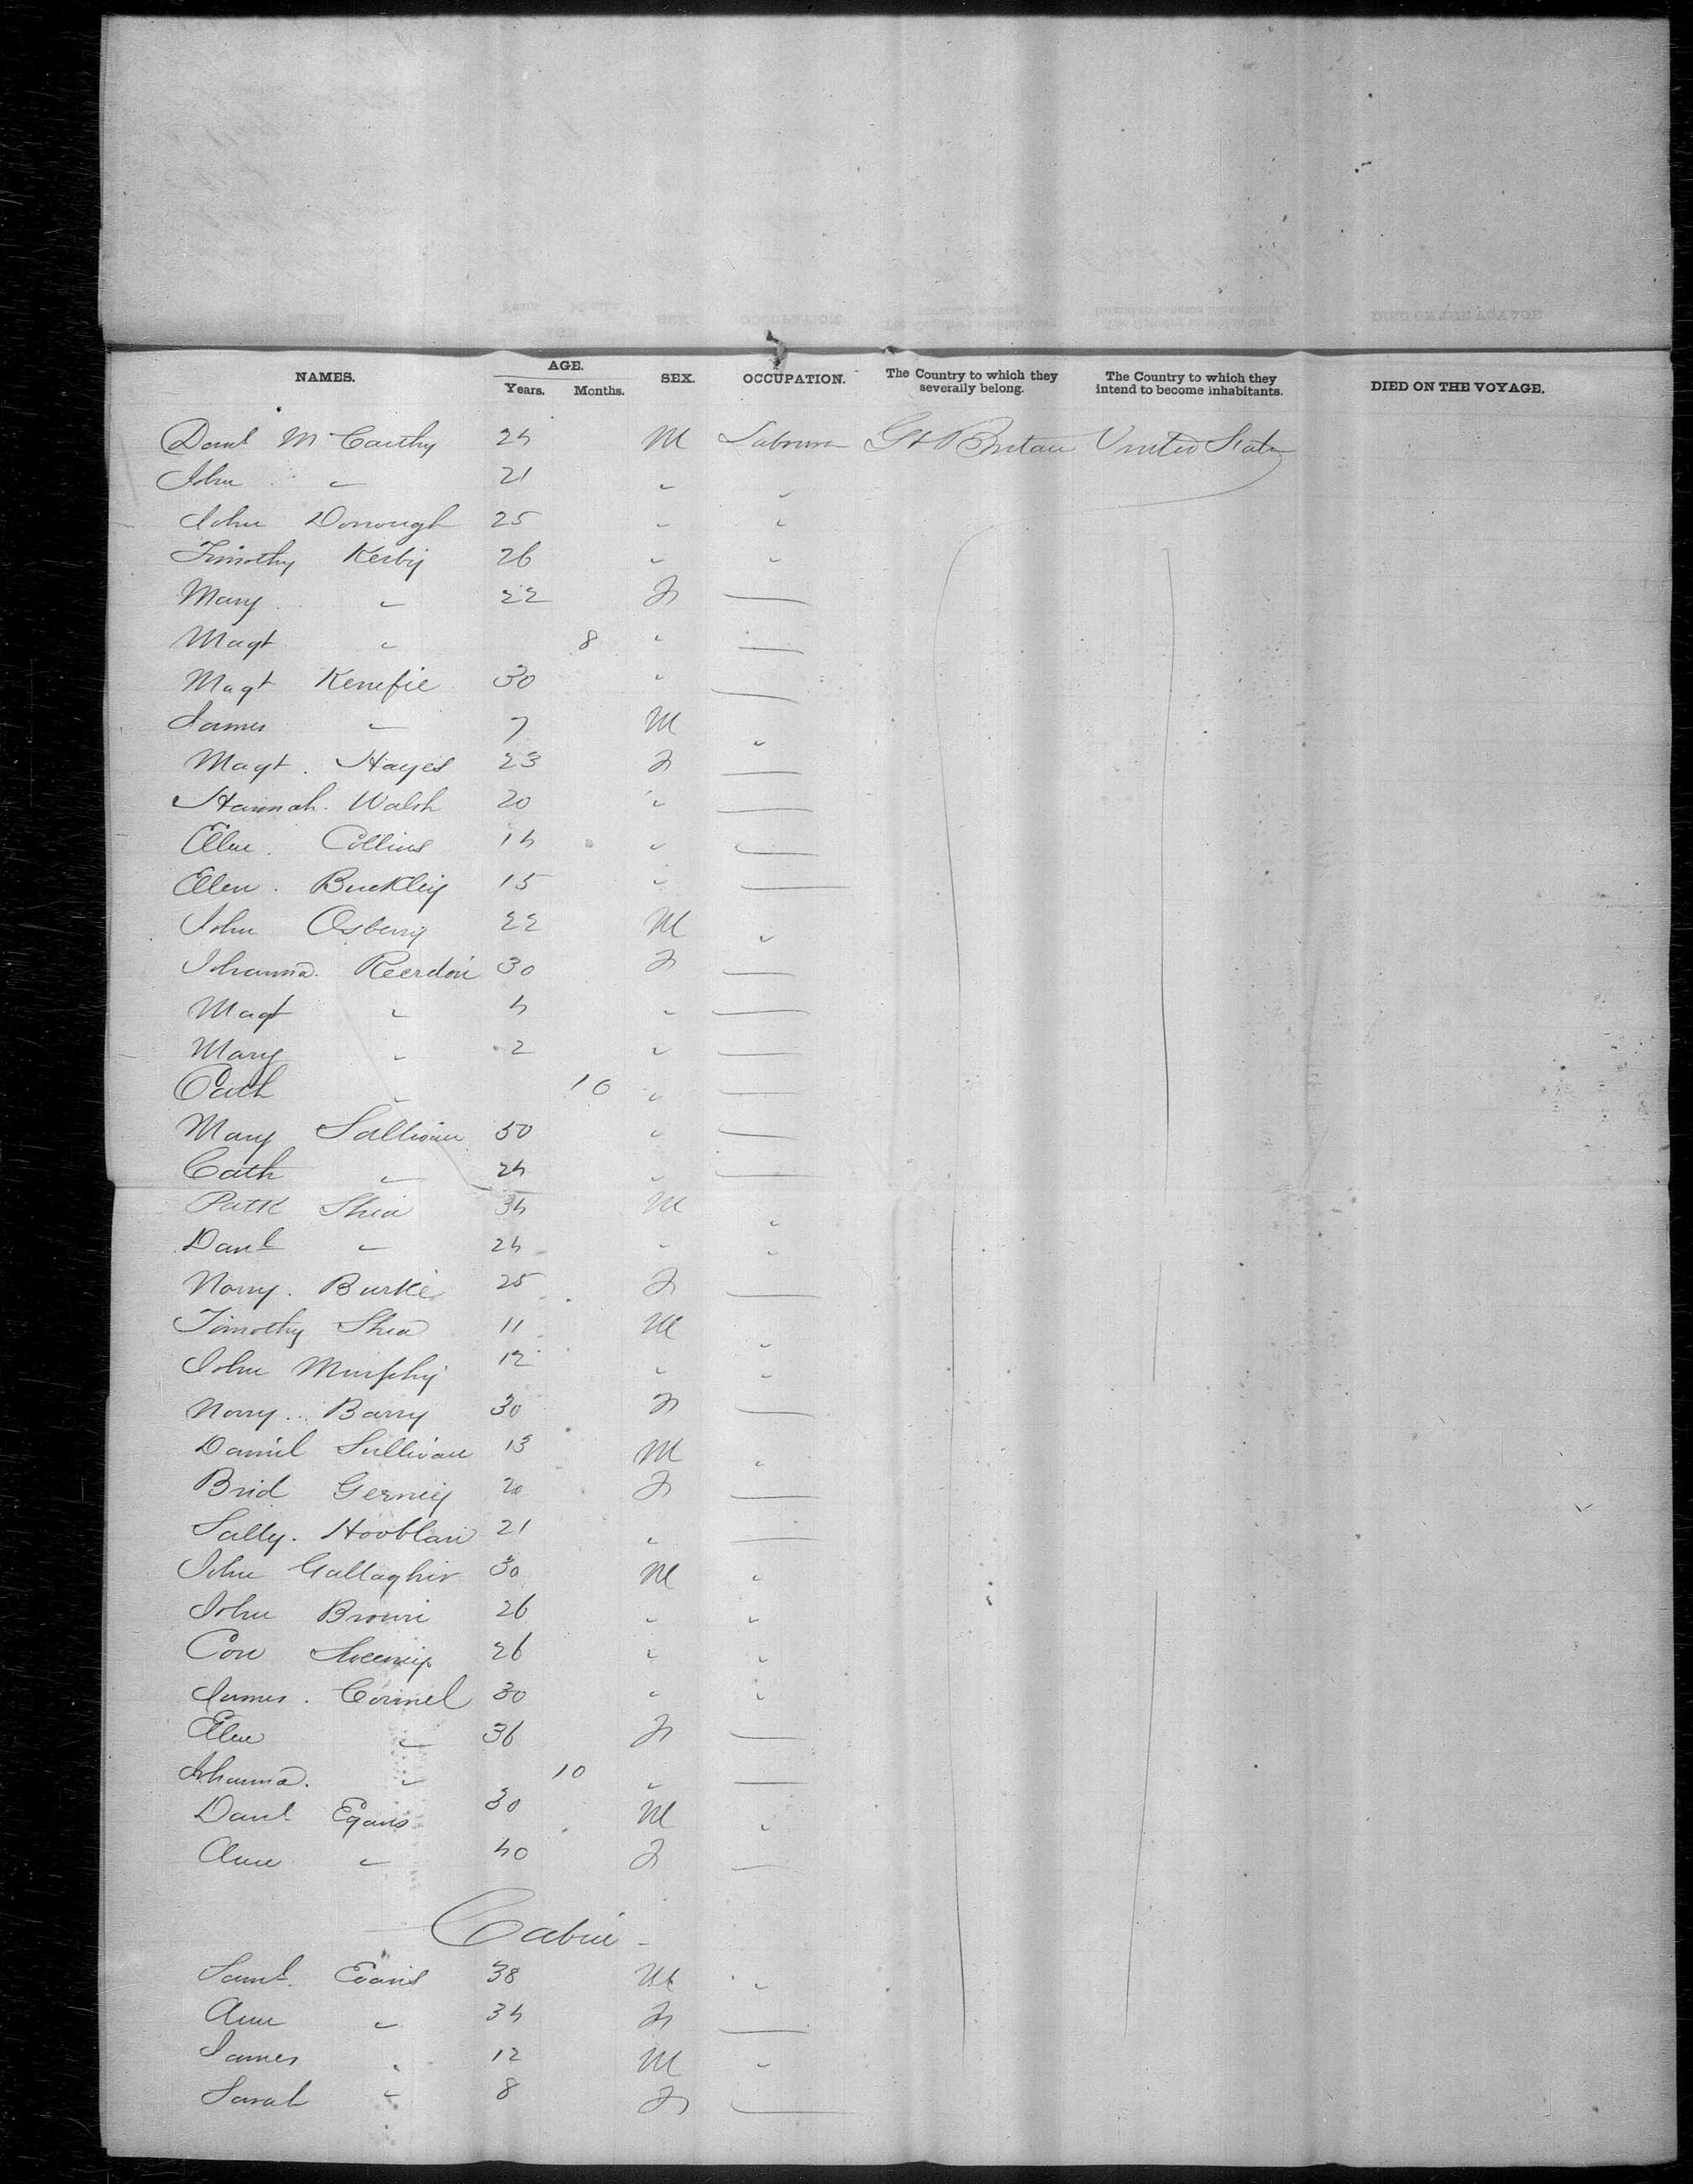 NAMES. AGE. Years. Months. SEX. OCCUPATION. The Country to which they severally belong. The Country to which they intend to become inhabitants. DIED ON THE VOYAGE.
Danl McCarthy 24 M Labourer Gt Britain United States
John " 21 " "
John Donough 25 " "
Timothy Kerby 26 " "
Mary " 22 F —
Magt " 8 " —
Magt Kenefic 30 " —
James " 7 M "
Magt. Hayes 23 F —
Hannah. Walsh 20 " —
Ellen. Collins 14 " —
Ellen. Buckley 15 " —
John Osberry 22 M "
Johanna. Reerdon 30 F —
Magt " 4 " —
Mary " 2 " —
Cath " 10 " —
Mary Sullivan 50 " —
Cath " 24 " —
Patk Shea 34 M "
Danl " 24 " "
Norry. Burke 25 F —
Timothy Shea 11 M "
John Murphy 12 " "
Norry. Barry 30 F —
Daniel Sullivan 13 M "
Brid Gerney 20 F —
Sally. 21 " —
John Gallagher 30 M "
John Brown 26 " "
Con Sweeney 26 " "
James. Connel 30 " "
Ellen " 36 F —
Johanna. " 10 " —
Danl Egans 30 M "
Ann " 40 F —
Cabin
Saml. Evans 38 M "
Ann " 34 F —
James " 12 M "
Sarah " 8 F —